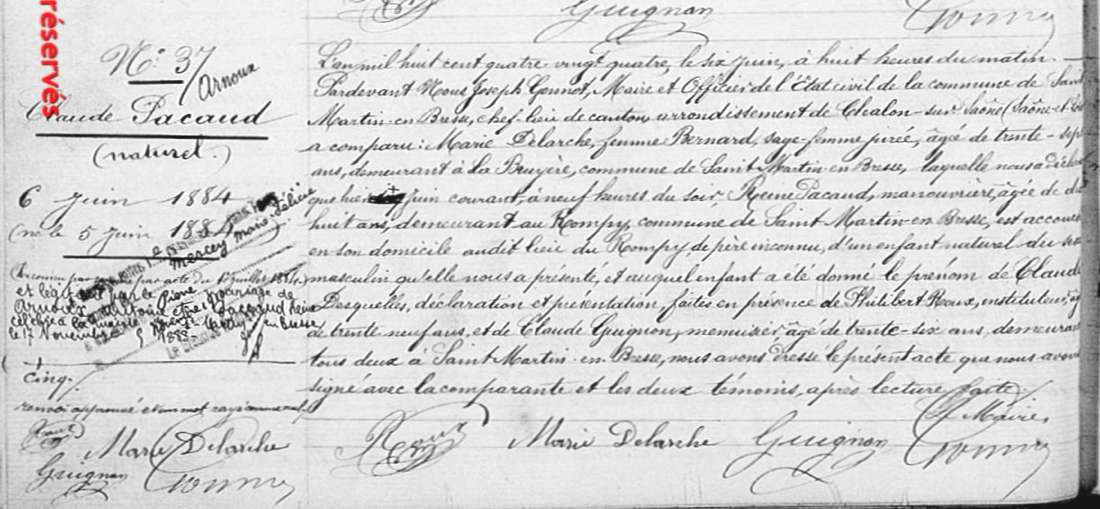 réservés
Guignon
N° 37
Arnoux
Claude Pacaud
(naturel.)
6 Juin 1884
(né le 5 Juin 1884)
Mercey Marie Félicie
par acte du
et légitimé par le mariage de
Arnoux Pierre
Pacaud Reine
célébré à
le 17 Novembre
en Bresse
+
cinq./.
renvoi approuvé et un mot rayé comme nul
Roux
Marie Delarche
Guignon
L'an mil huit cent quatre vingt quatre, le six juin, à huit heures du matin
Pardevant Nous Joseph Gonnot, Maire et Officier de l'État civil de la commune de Saint
Martin-en-Bresse, chef-lieu de canton, arrondissement de Chalon-sur-Saône (Saône-et-
a comparu: Marie Delarche, femme Bernard, sage-femme jurée, âgée de trente-sept
ans, demeurant à La Bruyère, commune de Saint-Martin-en-Bresse, laquelle nous a déclaré
que hier + juin courant, à neuf heures du soir Reine Pacaud, manouvrière, âgée de
huit ans, demeurant au Rompy, commune de Saint-Martin-en-Bresse, est accouchée
en son domicile audit lieu du Rompy, de père inconnu, d'un enfant naturel du sexe
masculin qu'elle nous a présenté, et auquel enfant a été donné le prénom de Claude
Desquelles, déclaration et présentation, faites en présence de Philibert Roux, instituteur,
de trente neuf ans, et de Claude Guignon, menuisier âgé de trente-six ans, demeurant
tous deux à Saint-Martin-en-Bresse, nous avons dressé le présent acte que nous avons
signé avec la comparante et les deux témoins, après lecture faite./.
Le Maire,
Roux Marie Delarche Guignon